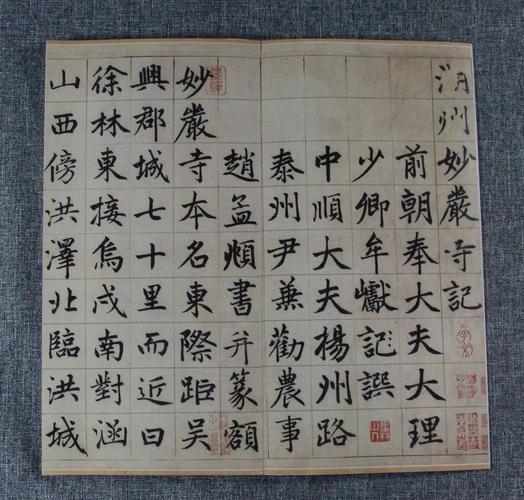 湖州妙嚴寺記
前朝奉大夫大理
少卿牟巘記譔
中順大夫楊州路
泰州尹兼勸農事
趙孟頫書并篆額
妙嚴寺本名東際距吳
興郡城七十里而近曰
徐林東接烏戍南對涵
山西傍洪澤北臨洪城